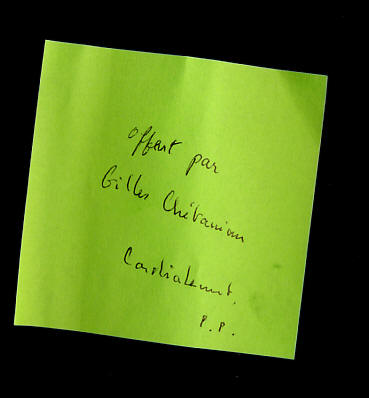 Offert par
Gilles Chétanian
Cordialement,
P.P.